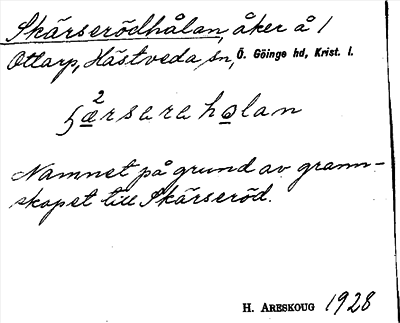 Skärserödhålan, åker å 1
Ottarp, Hästveda sn, Ö. Göinge hd, Krist. l.
Namnet på grund av grann-
skapet till Skärseröd.
H. Areskoug 1928